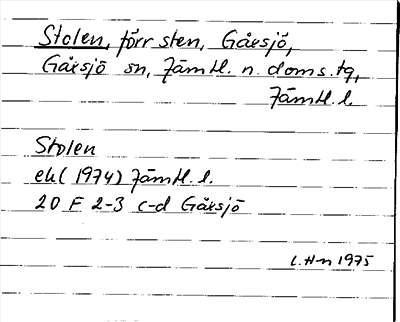 Stolen, förr sten, Gåxsjö,
Gåxsjö sn, Jämtl. n. doms.tg,
Jämtl. l.
Stolen
ek (1974) Jämtl. l.
20 F 2-3 c-d Gåxsjö
L.H-n 1975